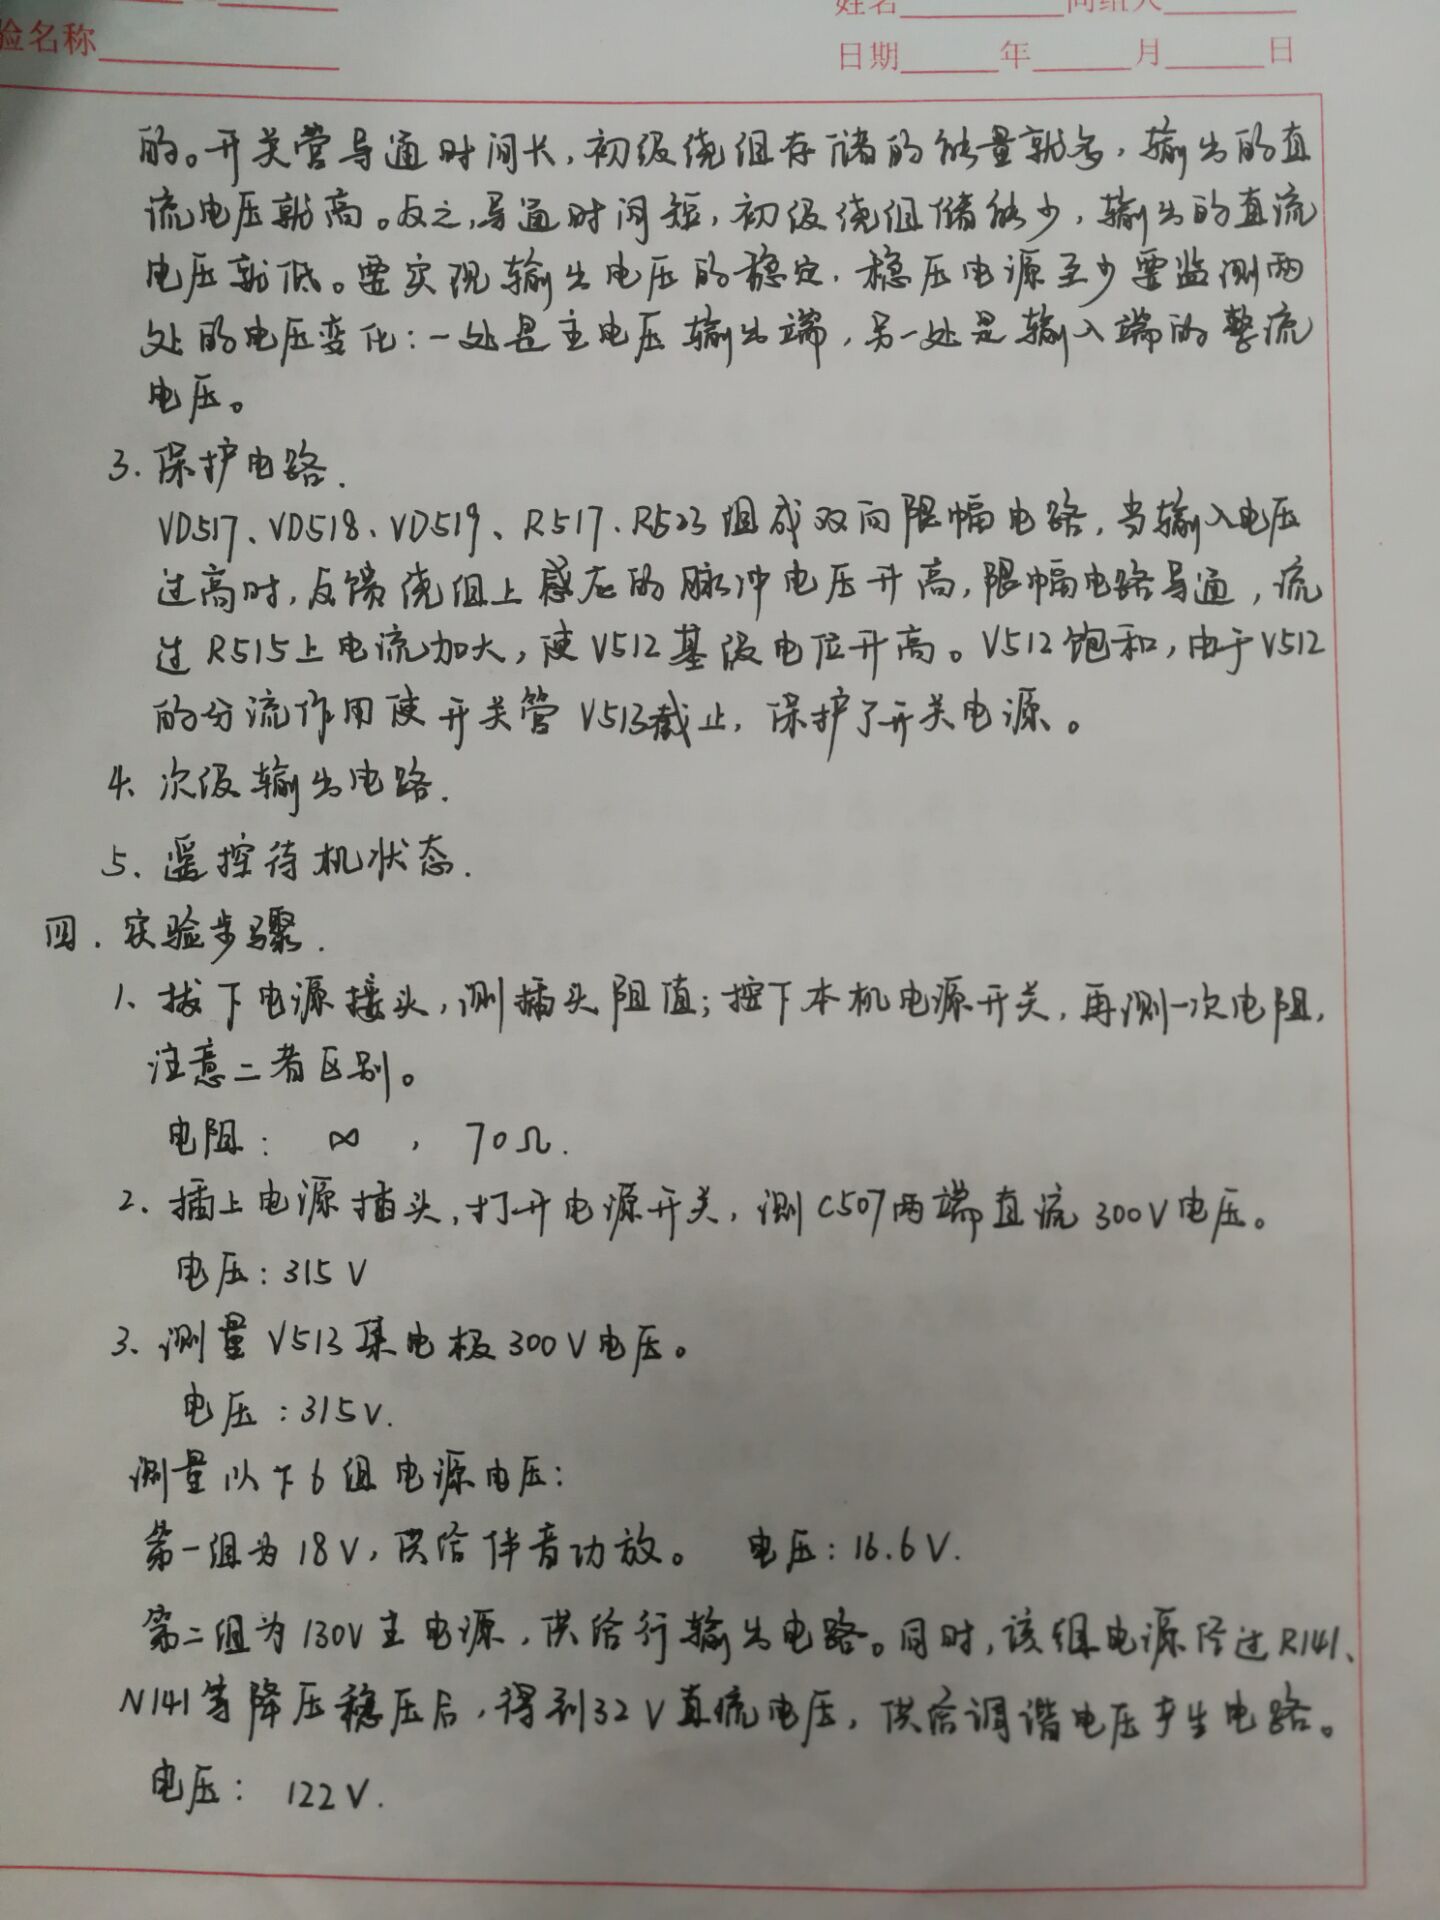 姓名 同组人
验名称
日期 年 月 日
的。开关管导通时间长，初级绕组存储的能量就多，输出的直
流电压就高。反之，导通时间短，初级绕组储能少，输出的直流
电压就低。要实现输出电压的稳定，稳压电源至少要监测两
处的电压变化：一处是主电压输出端，另一处是输入端的整流
电压。
3. 保护电路.
VD517、VD518、VD519、R517、R523组成双向限幅电路，当输入电压
过高时，反馈绕组上感应的脉冲电压升高，限幅电路导通，流
过R515上电流加大，使V512基极电位升高。V512饱和，由于V512
的分流作用使开关管V513截止，保护了开关电源。
4、次级输出电路.
5、遥控待机状态.
四、实验步骤.
1、拔下电源接头，测插头阻值；按下本机电源开关，再测一次电阻，
注意二者区别。
电阻： ∞ ， 70Ω.
2、插上电源插头，打开电源开关，测C507两端直流300V电压。
电压：315V
3、测量V513集电极300V电压。
电压：315V.
测量以下6组电源电压：
第一组为18V，供给伴音功放。 电压：16.6V.
第二组为130V主电源，供给行输出电路。同时，该组电源经过R141、
N141等降压稳压后，得到32V直流电压，供给调谐电压产生电路。
电压： 122V.